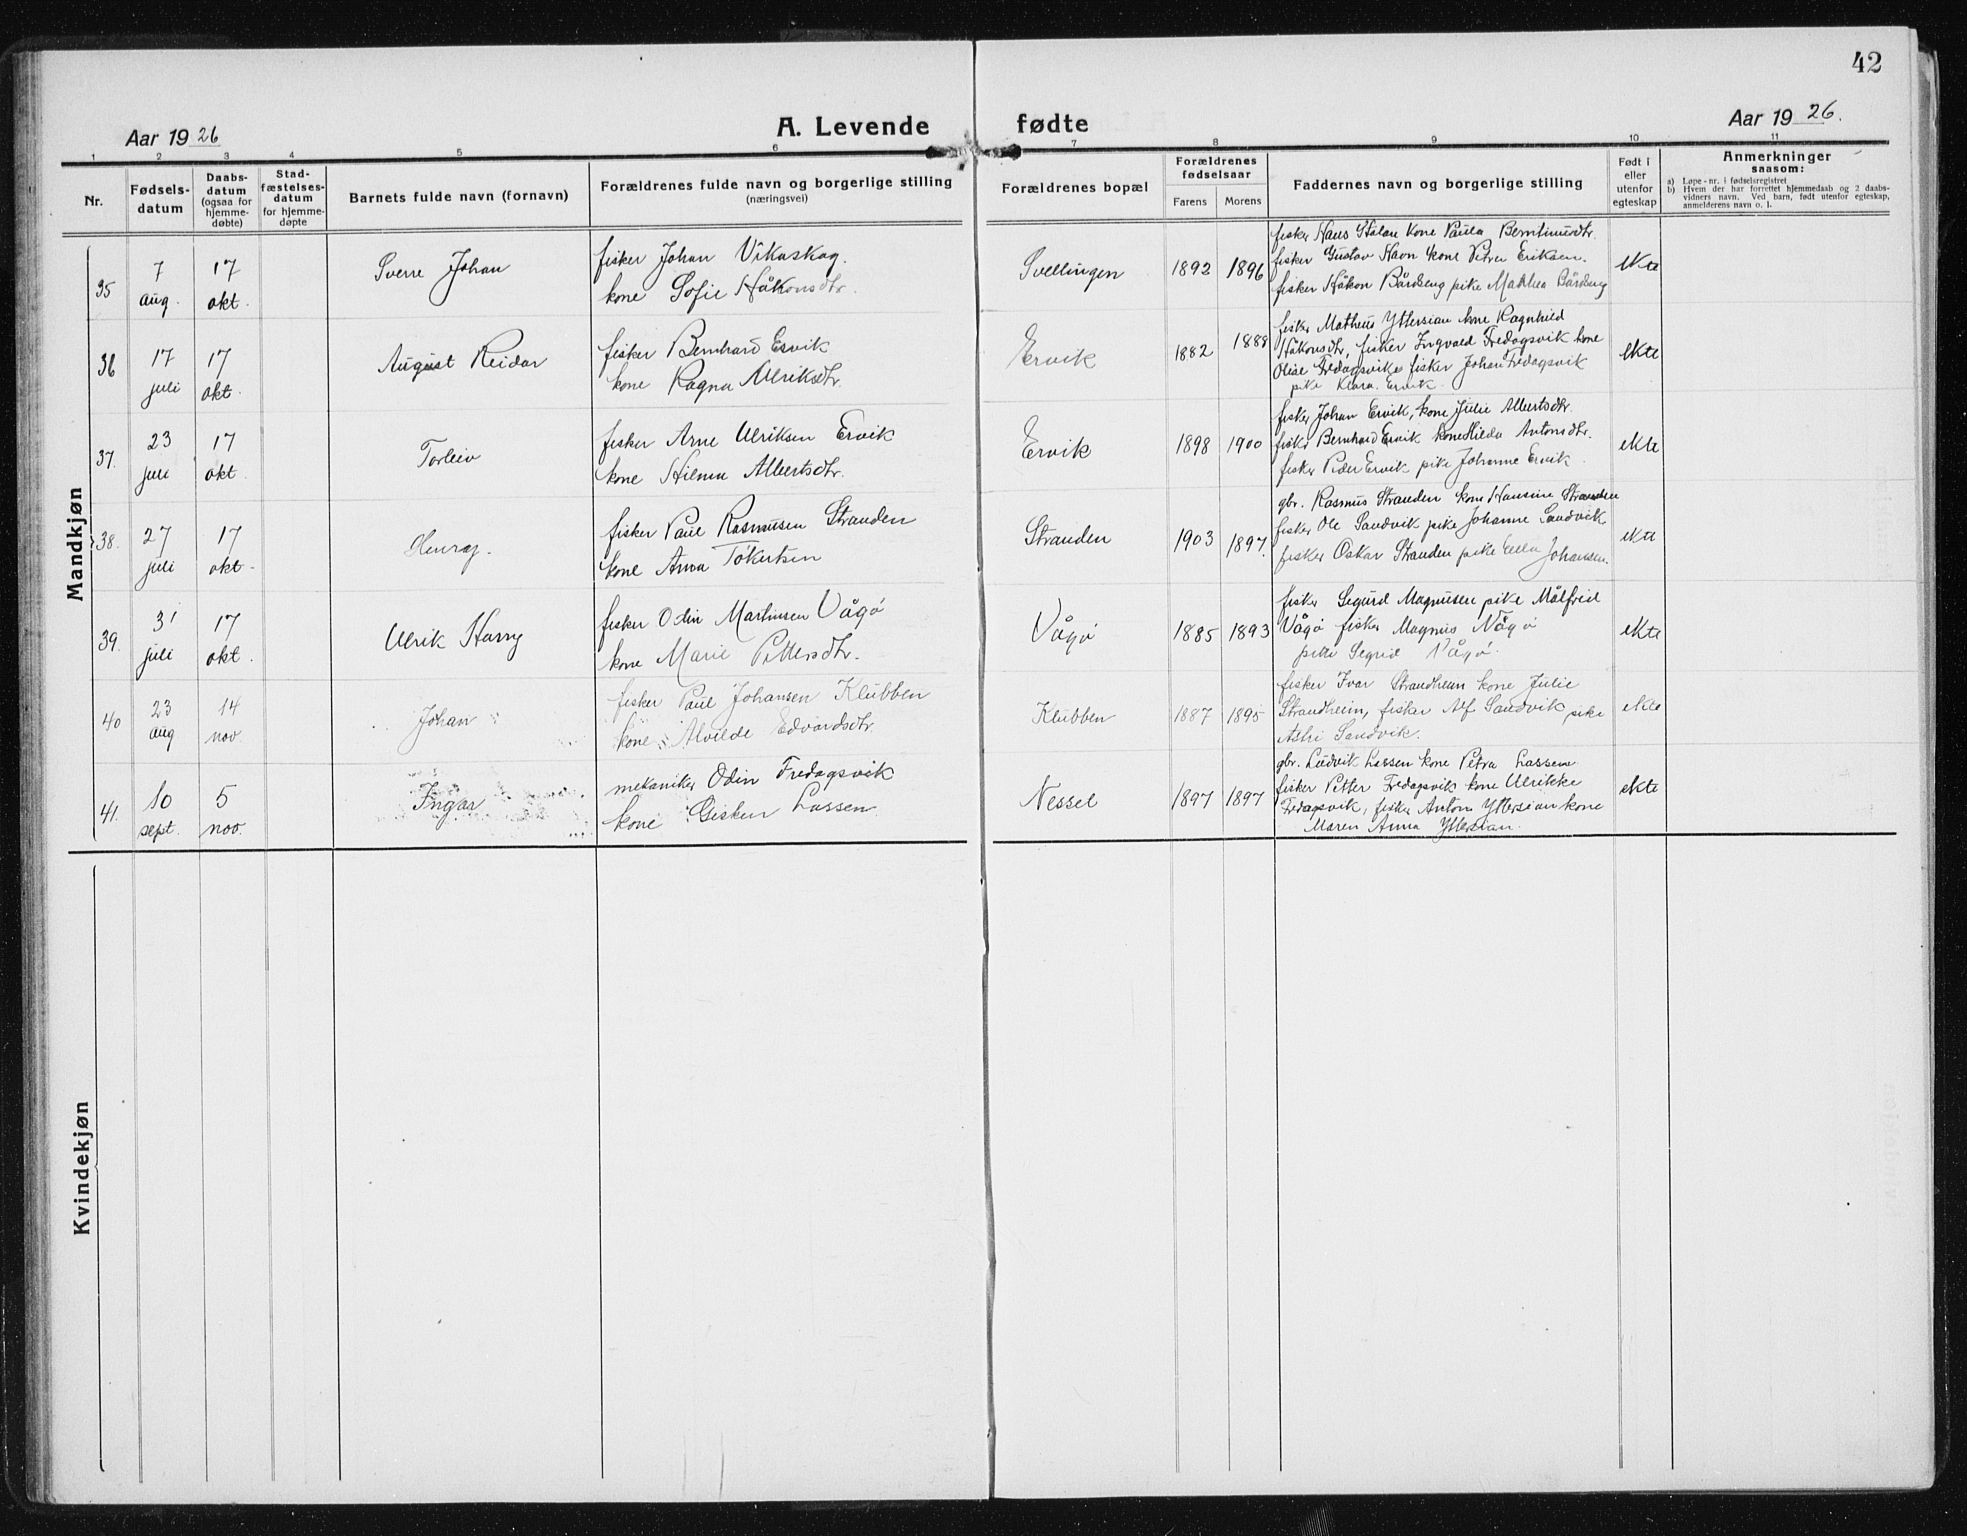 42
Aar 1926
A. Levende fødte
Aar 1926.
1 2 3 4 5 6 7 8 9 10 11
Nr.
Fødsels-
datum
Daabs-
datum
(ogsaa for
hjemme-
døbte)
Stad-
fæstelses-
datum
for hjemme-
døpte
Barnets fulde navn (fornavn)
Forældrenes fulde navn og borgerlige stilling
(næringsvei)
Forældrenes bopæl
Forældrenes
fødselsaar
Farens Morens
Faddernes navn og borgerlige stilling
Født i
eller
utenfor
egteskap
Anmerkninger
saasom:
a) Løpe-nr. i fødselsregistret
b) Hvem der har forrettet hjemmedaab og 2 daabs-
vidners navn. Ved barn, født utenfor egteskap,
anmelderens navn o. l.
Mandkjøn
35 7 aug. 17 okt. Sverre Johan
fisker Johan Vikaskag.
kone Sofie Håkonsdtr.
Svellingen 1892 1896
fisker Hans Stølan kone Paula Berntinusdtr.
fisker Gustav Havn kone Petra Eriksen.
fisker Håkon Bårdseng pike Mathea Bårdseng
ekte
36 17 juli 17 okt. August Reidar
fisker Bernhard Ervik
kone Ragna Ulriksdtr.
Ervik 1882 1888
fisker Matheus Yttersian kone Ragnhild
Håkonsdtr, fisker Ingvald Fredagsvik kone
Olise Fredagsvik fisker Johan Fredagsvik
pike Klara Ervik.
ekte
37. 23 juli 17 okt. Torleiv
fisker Arne Ulriksen Ervik
kone Hilma Albertsdtr.
Ervik 1898 1900
fisker Johan Ervik, kone Julie Albertsdtr.
fisker Bernhard Ervik kone Hilda Antonsdtr.
fisker Peder Ervik pike Johanne Ervik
ekte
38. 27 juli 17 okt. Henry.
fisker Paul Rasmussen Stranden
kone Anna Tøkertsen
Stranden 1903 1897.
gbr. Rasmus Stranden kone Hansine Stranden
fisker Ole Sandvik pike Johanne Sandvik
fisker Oskar Stranden pike Ella Johansen.
ekte
39. 31 juli 17 okt. Ulrik Harry
fisker Odin Martinsen Vågø
kone Marie Pettersdtr.
Vågø 1885 1893
fisker Sigurd Magnusen pike Målfrid
Vågø fisker Magnus Vågø
pike Sigrid Vågø.
ekte
40 23 aug 14 nov. Johan
fisker Paul Johansen Klubben
kone Alvilde Edvardsdtr.
Klubben 1887 1895
fisker Ivar Strandheim kone Julie
Strandheim, fisker Alf Sandvik pike
Astri Sandvik.
ekte
41. 10 sept. 5 nov. Ingar
mekaniker Odin Fredagsvik
kone Gisken Lassen.
Nesset 1897 1897
gbr. Ludvik Lassen kone Petra Lassen
fisker Petter Fredagsvik kone Ulrikke
Fredagsvik, fisker Anton Yttersian kone
Maren Anna Yttersian.
ekte
Kvindekjøn